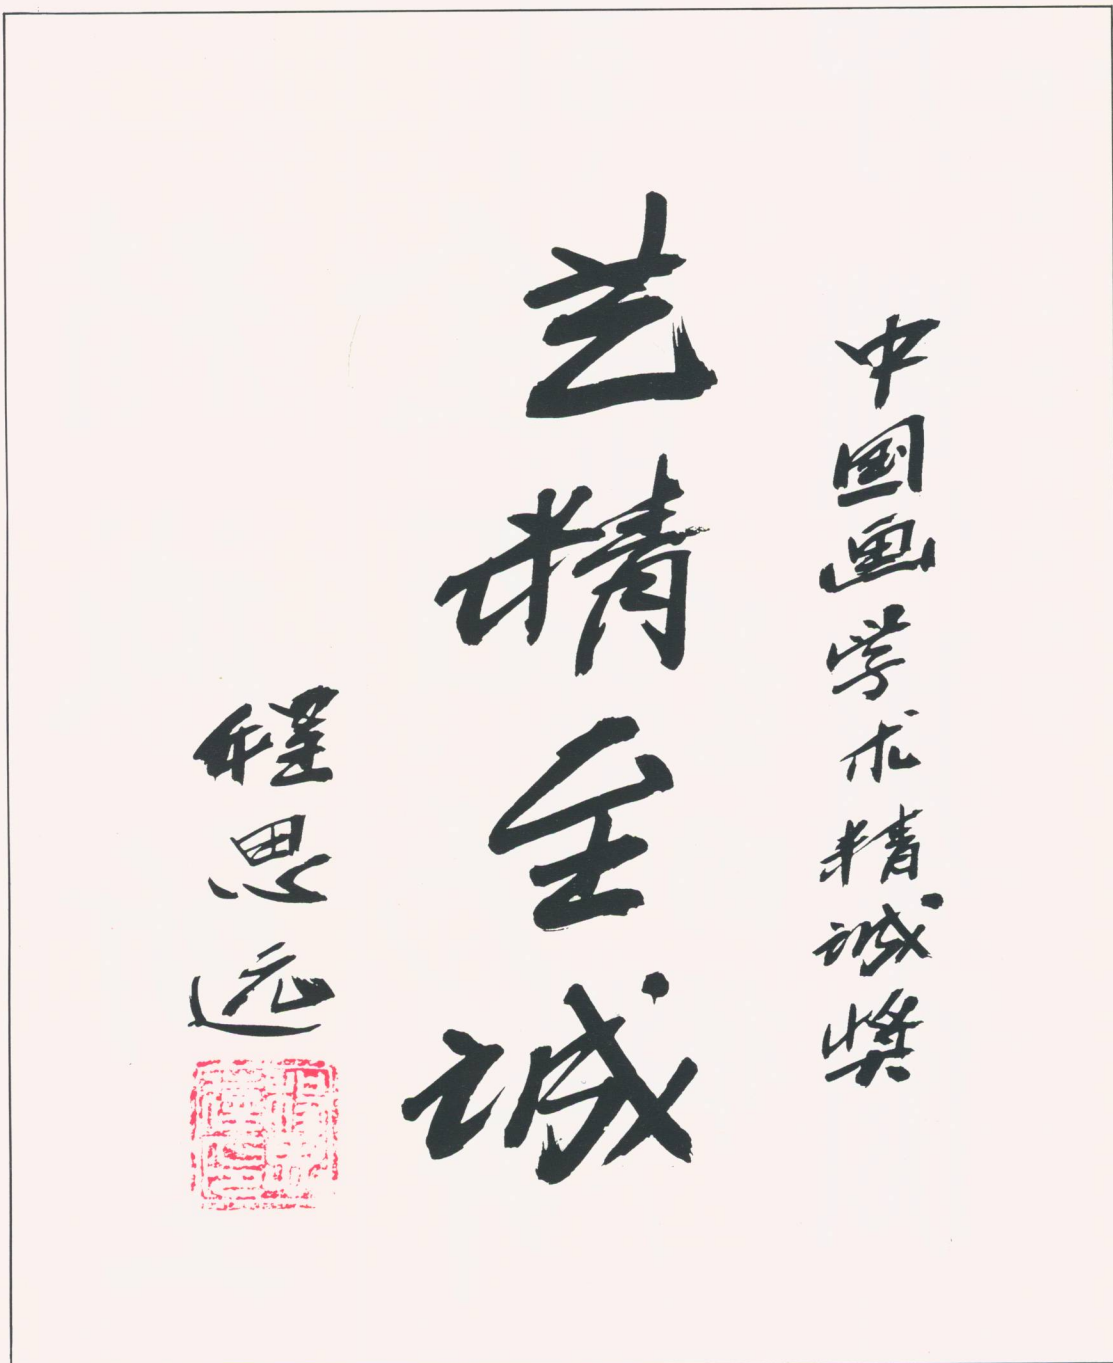 中国画学术精诚奖
艺精至诚
程思远